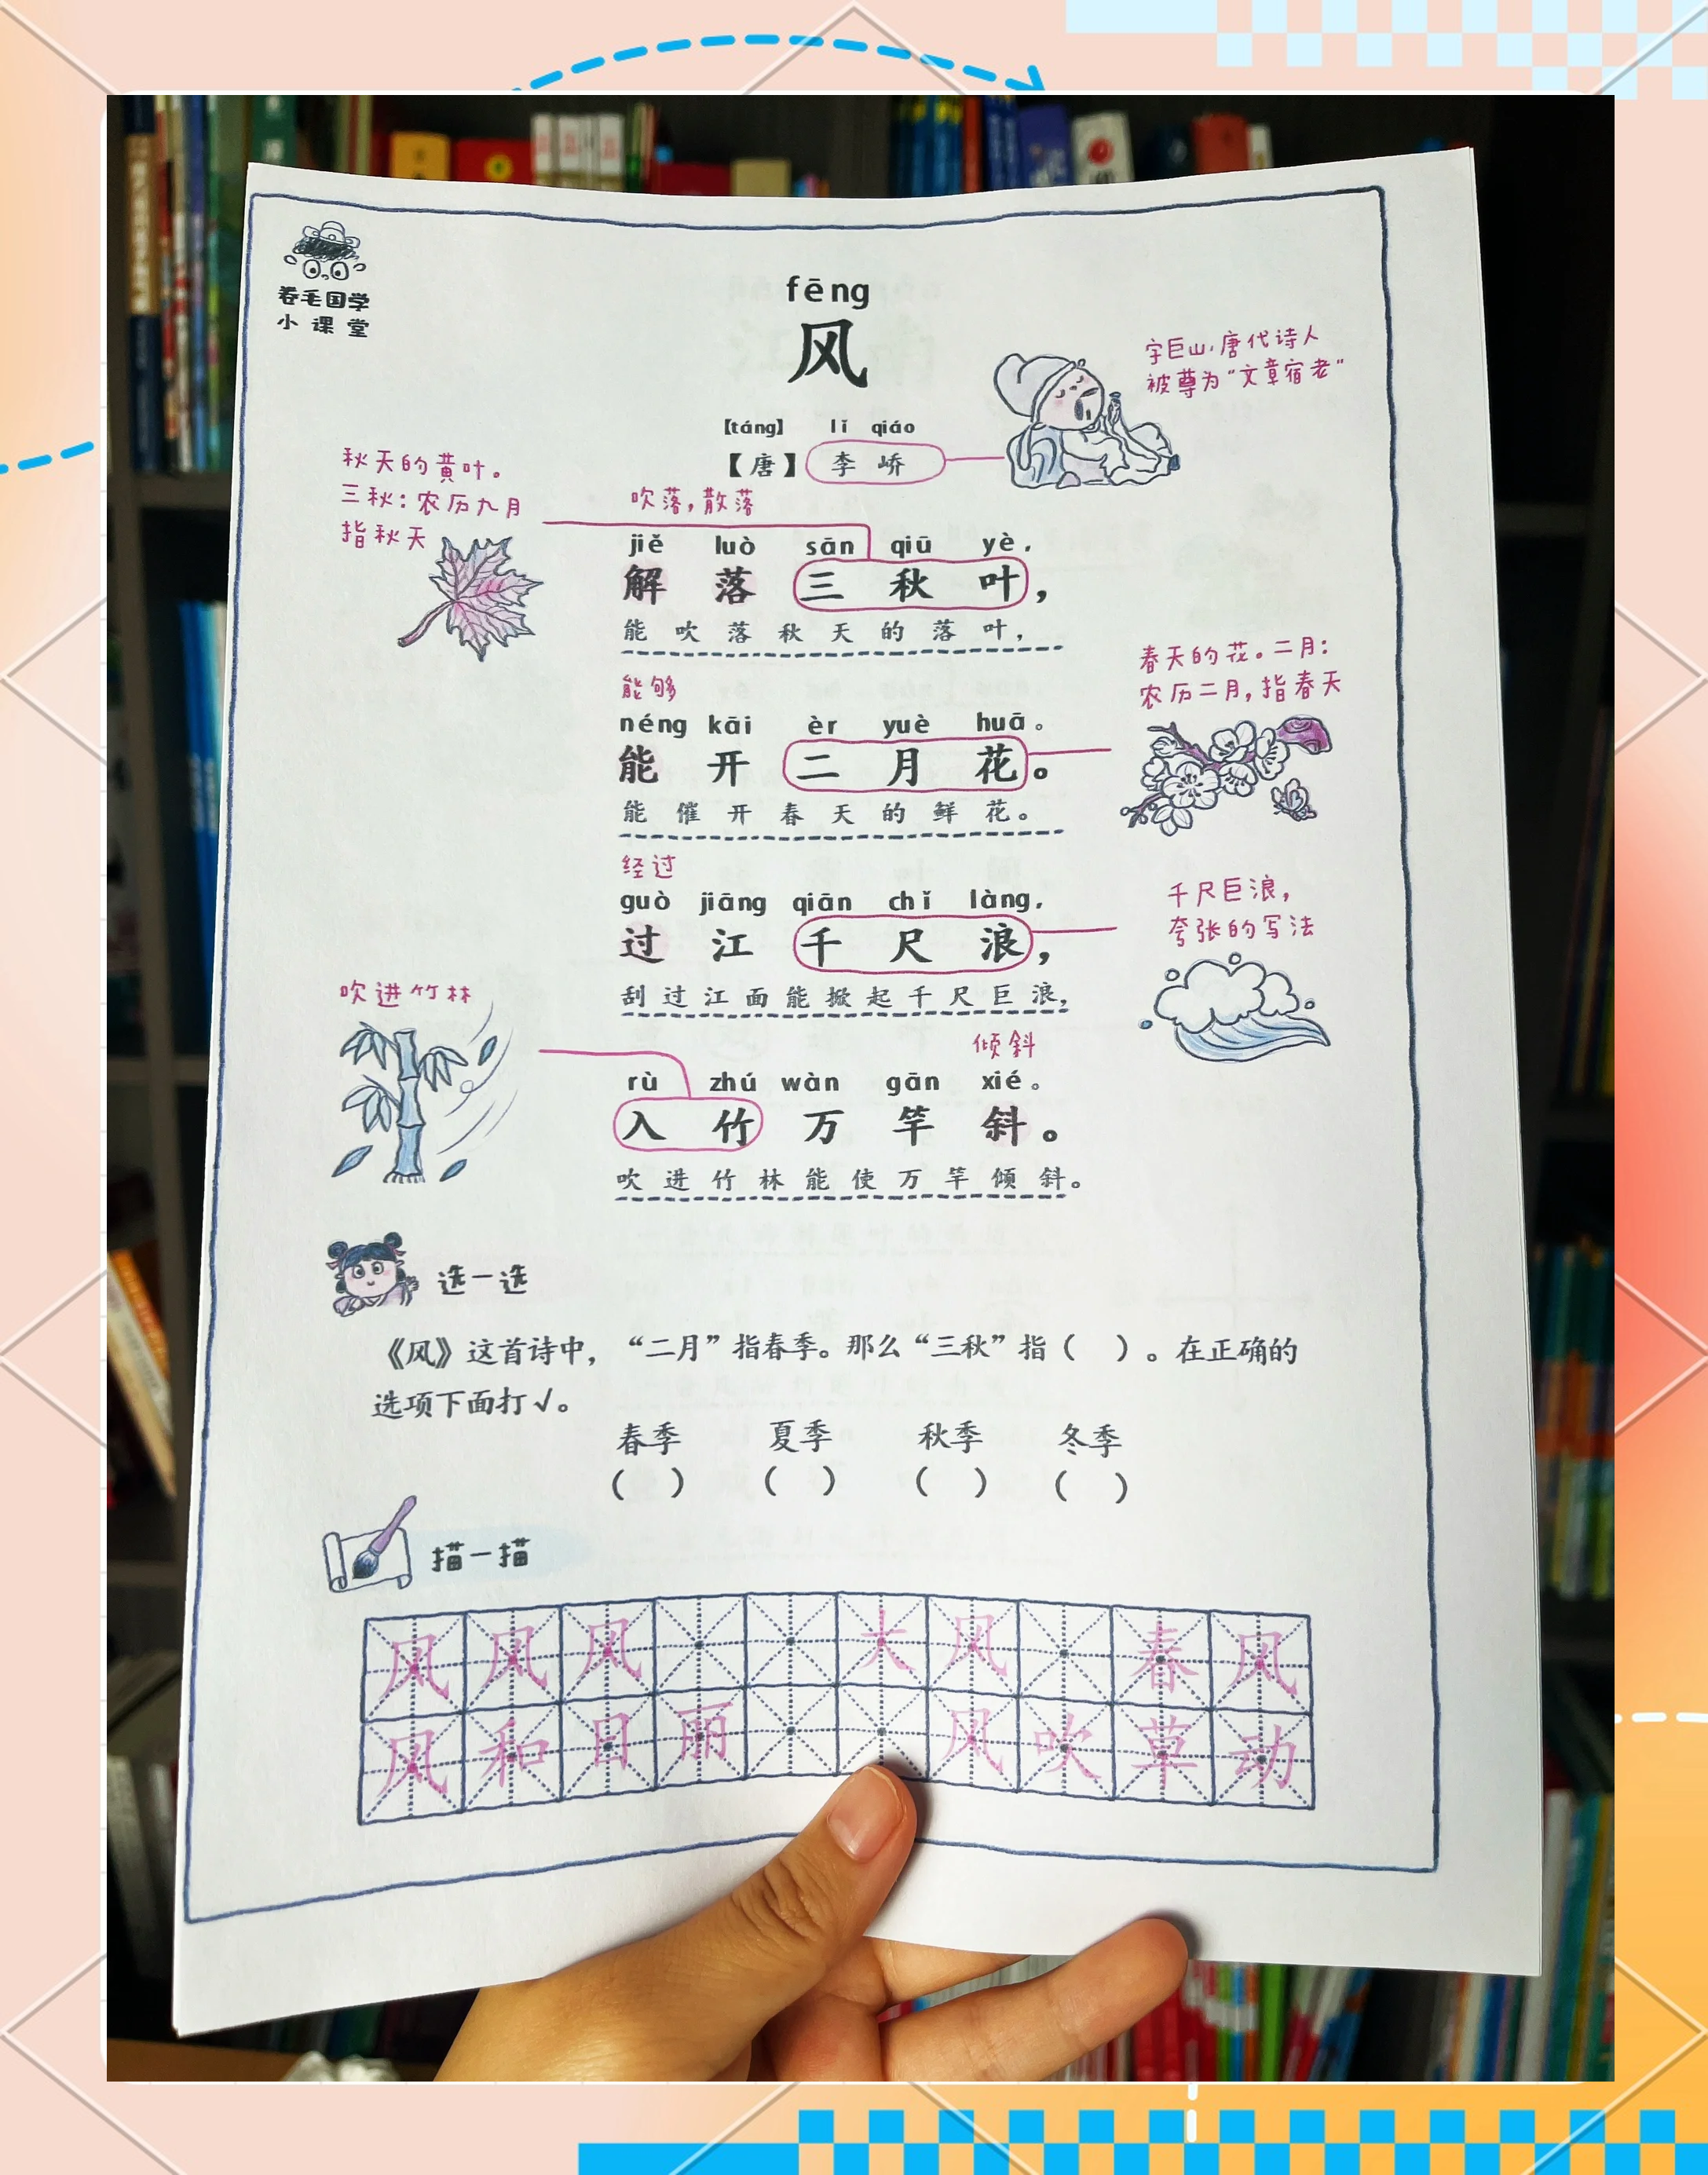 卷毛国学
小课堂
fēng
风
字巨山，唐代诗人
被尊为“文章宿老”
【táng】 lǐ qiáo
【唐】李峤
秋天的黄叶。
三秋：农历九月
指秋天
吹落，散落
jiě luò sān qiū yè，
解落三秋叶，
能吹落秋天的落叶，
能够
néng kāi èr yuè huā。
能开二月花。
能催开春天的鲜花。
春天的花。二月：
农历二月，指春天
经过
guò jiāng qiān chǐ làng，
过江千尺浪，
刮过江面能掀起千尺巨浪，
千尺巨浪，
夸张的写法
吹进竹林
倾斜
rù zhú wàn gān xié。
入竹万竿斜。
吹进竹林能使万竿倾斜。
选一选
《风》这首诗中，“二月”指春季。那么“三秋”指（ ）。在正确的
选项下面打√。
春季 夏季 秋季 冬季
（ ） （ ） （ ） （ ）
描一描
风 风 风 大 风 春 风
风 和 日 丽 风 吹 草 动